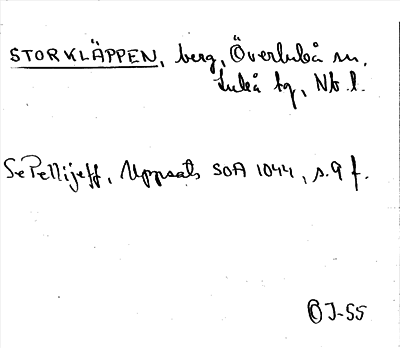 STORKLÄPPEN, berg, Överluleå sn,
Luleå tg, Nb. l.
Se Pellijeff, Uppsats SOA 1044, s. 9 f.
ÖJ-55